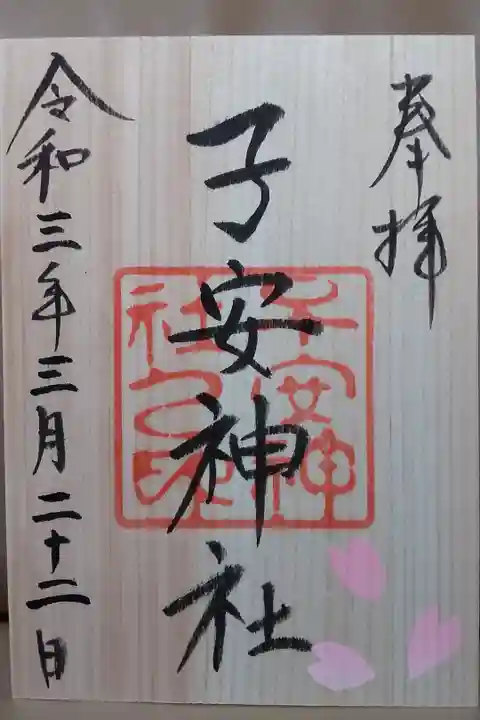 奉拝
子安神社
令和三年三月二十二日
子安神
社之印